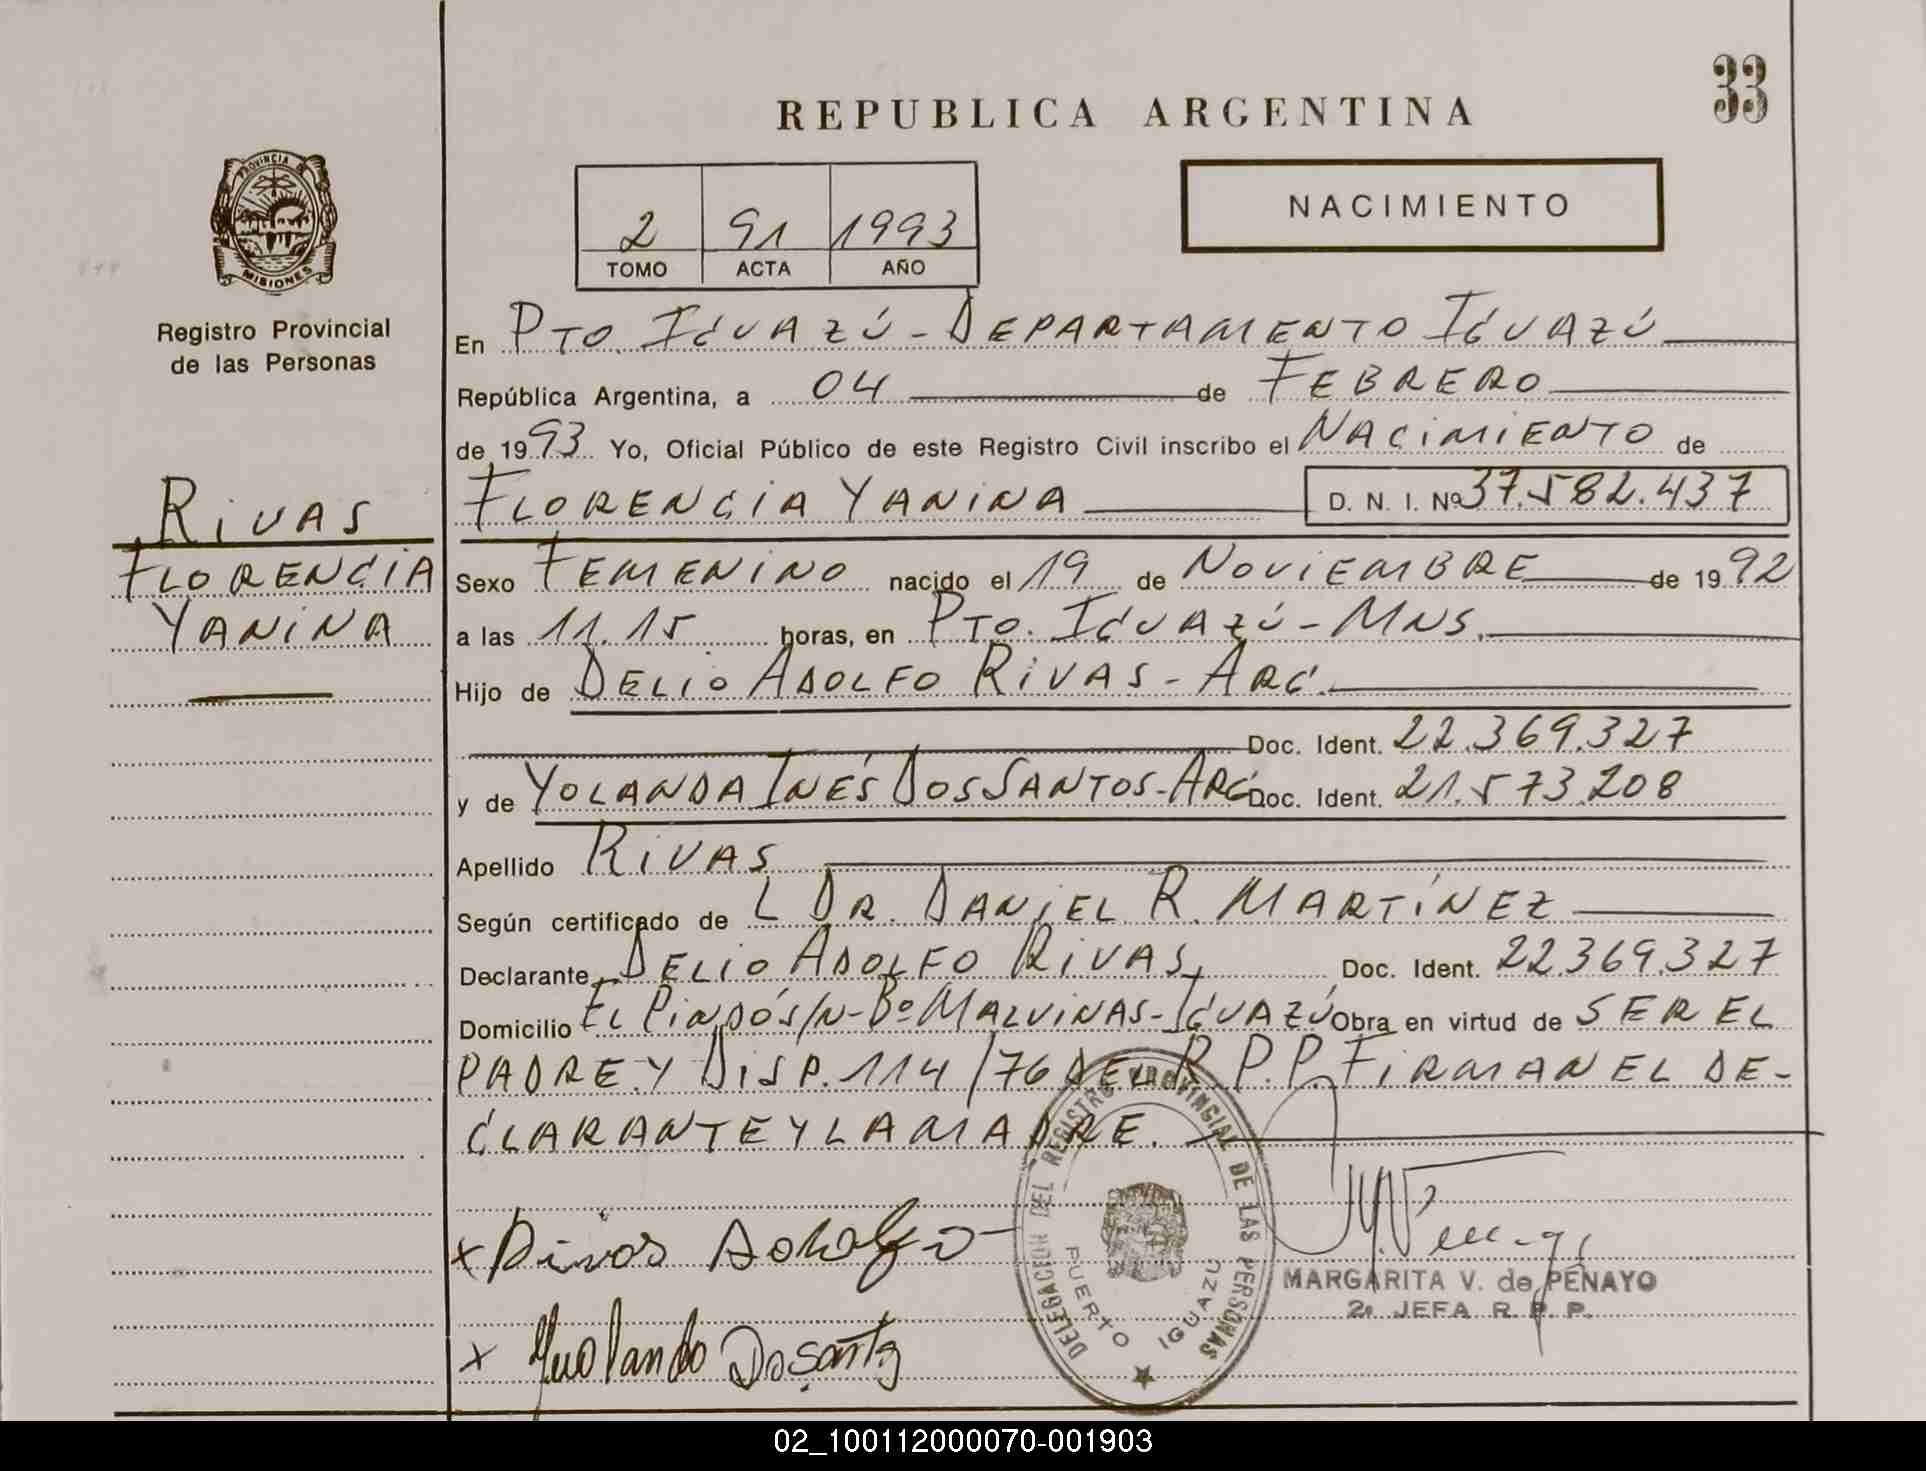 33
REPUBLICA ARGENTINA
PROVINCIA DE
MISIONES
Registro Provincial
de las Personas
2 91 1993
TOMO ACTA AÑO
NACIMIENTO
En PTO. IGUAZÚ - DEPARTAMENTO IGUAZÚ
República Argentina, a 04 de FEBRERO
de 1993 Yo, Oficial Público de este Registro Civil inscribo el NACIMIENTO de
RIVAS
FLORENCIA YANINA D. N. I. Nº 37.582.437
FLORENCIA
YANINA
Sexo FEMENINO nacido el 19 de NOVIEMBRE de 1992
a las 11.15 horas, en PTO. IGUAZÚ - MNS.
Hijo de DELIO ADOLFO RIVAS - ARG.
Doc. Ident. 22.369.327
y de YOLANDA INÉS DOS SANTOS - ARG Doc. Ident. 21.573.208
Apellido RIVAS
Según certificado de L DR. DANIEL R. MARTÍNEZ
Declarante DELIO ADOLFO RIVAS, Doc. Ident. 22369.327
Domicilio EL PINDÓ S/N - Bº MALVINAS - IGUAZÚ Obra en virtud de SER EL
PADRE Y DISP. 114/76 DEL R.P.P. FIRMAN EL DE-
CLARANTE Y LA MADRE.
x Rivas Adolfo
x Yuolando Dosanto
DELEGACION DEL REGISTRO PROVINCIAL DE LAS PERSONAS
PUERTO IGUAZU
MARGARITA V. de PENAYO
2a. JEFA R. P. P.
02_100112000070-001903